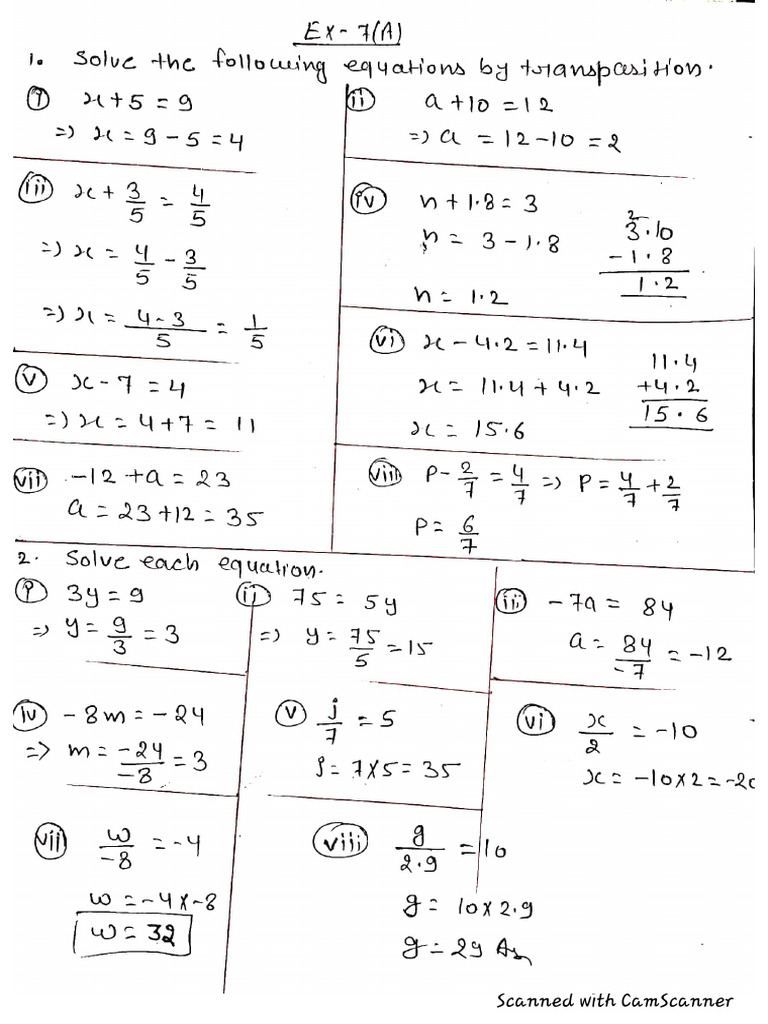 Ex-7(A)
1. Solve the following equations by transpasition.
i x+5=9
=> x=9-5=4
ii a+10=12
=> a=12-10=2
iii x+3/5=4/5
=> x=4/5-3/5
=> x=4-3/5=1/5
iv n+1.8=3
n=3-1.8
n=1.2
2
3.10
-1.8
1.2
v x-7=4
=> x=4+7=11
vi x-4.2=11.4
x=11.4+4.2
x=15.6
11.4
+4.2
15.6
vii -12+a=23
a=23+12=35
viii P-2/7=4/7 => P=4/7+2/7
P=6/7
2. Solve each equation.
i 3y=9
=> y=9/3=3
ii 75=5y
=> y=75/5=15
iii -7a=84
a=84/-7=-12
iv -8m=-24
=> m=-24/-8=3
v j/7=5
j=7×5=35
vi x/2=-10
x=-10×2=-20
vii w/-8=-4
w=-4×-8
w=32
viii g/2.9=10
g=10×2.9
g=29 Ans
Scanned with CamScanner